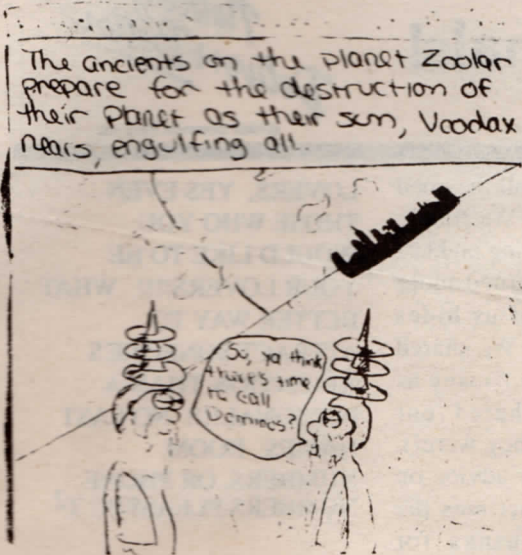 The ancients on the planet Zoolar
prepare for the destruction of
their Planet as their sun, Voodax
nears, engulfing all.
So, ya think
there's time
to call
Dominos?